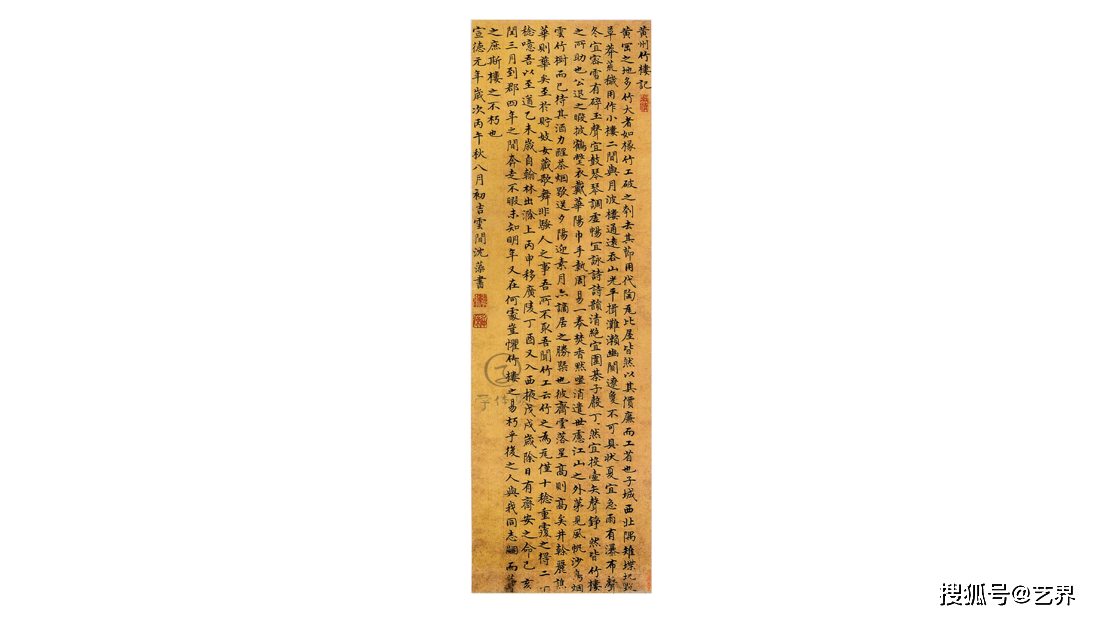 黄州竹樓記
黄岡之地多竹大者如椽竹工破之刳去其節用代陶瓦比屋皆然以其價廉而工省也子城西北隅雉堞圮毁
草莽荒穢用作小樓二間與月波樓通遠吞山光平揖灘瀨幽閴遼夐不可具狀夏宜急雨有瀑布聲
冬宜密雪有碎玉聲宜鼓琴琴調虛暢宜詠詩詩韻清絶宜圍棊子聲丁丁然宜投壺矢聲錚錚然皆竹樓
之所助也公退之暇披鶴氅衣戴華陽巾手執周易一卷焚香黙坐消遣世慮江山之外第見風帆沙鳥烟
雲竹樹而已待其酒力醒茶烟歇送夕陽迎素月亦謫居之勝槩也彼齊雲落星高則高矣井幹麗譙
華則華矣至於貯妓女藏歌舞非騷人之事吾所不取吾聞竹工云竹之為瓦僅十稔重覆之得二十
稔噫吾以至道乙未歲自翰林出滁上丙申移廣陵丁酉又入西掖戊戌歲除日有齊安之命己亥
閏三月到郡四年之間奔走不暇未知明年又在何處豈懼竹樓之易朽乎後之人與我同志嗣而葺
之庶斯樓之不朽也
宣德元年歲次丙午秋八月初吉雲間沈藻書
字体
搜狐号@艺界